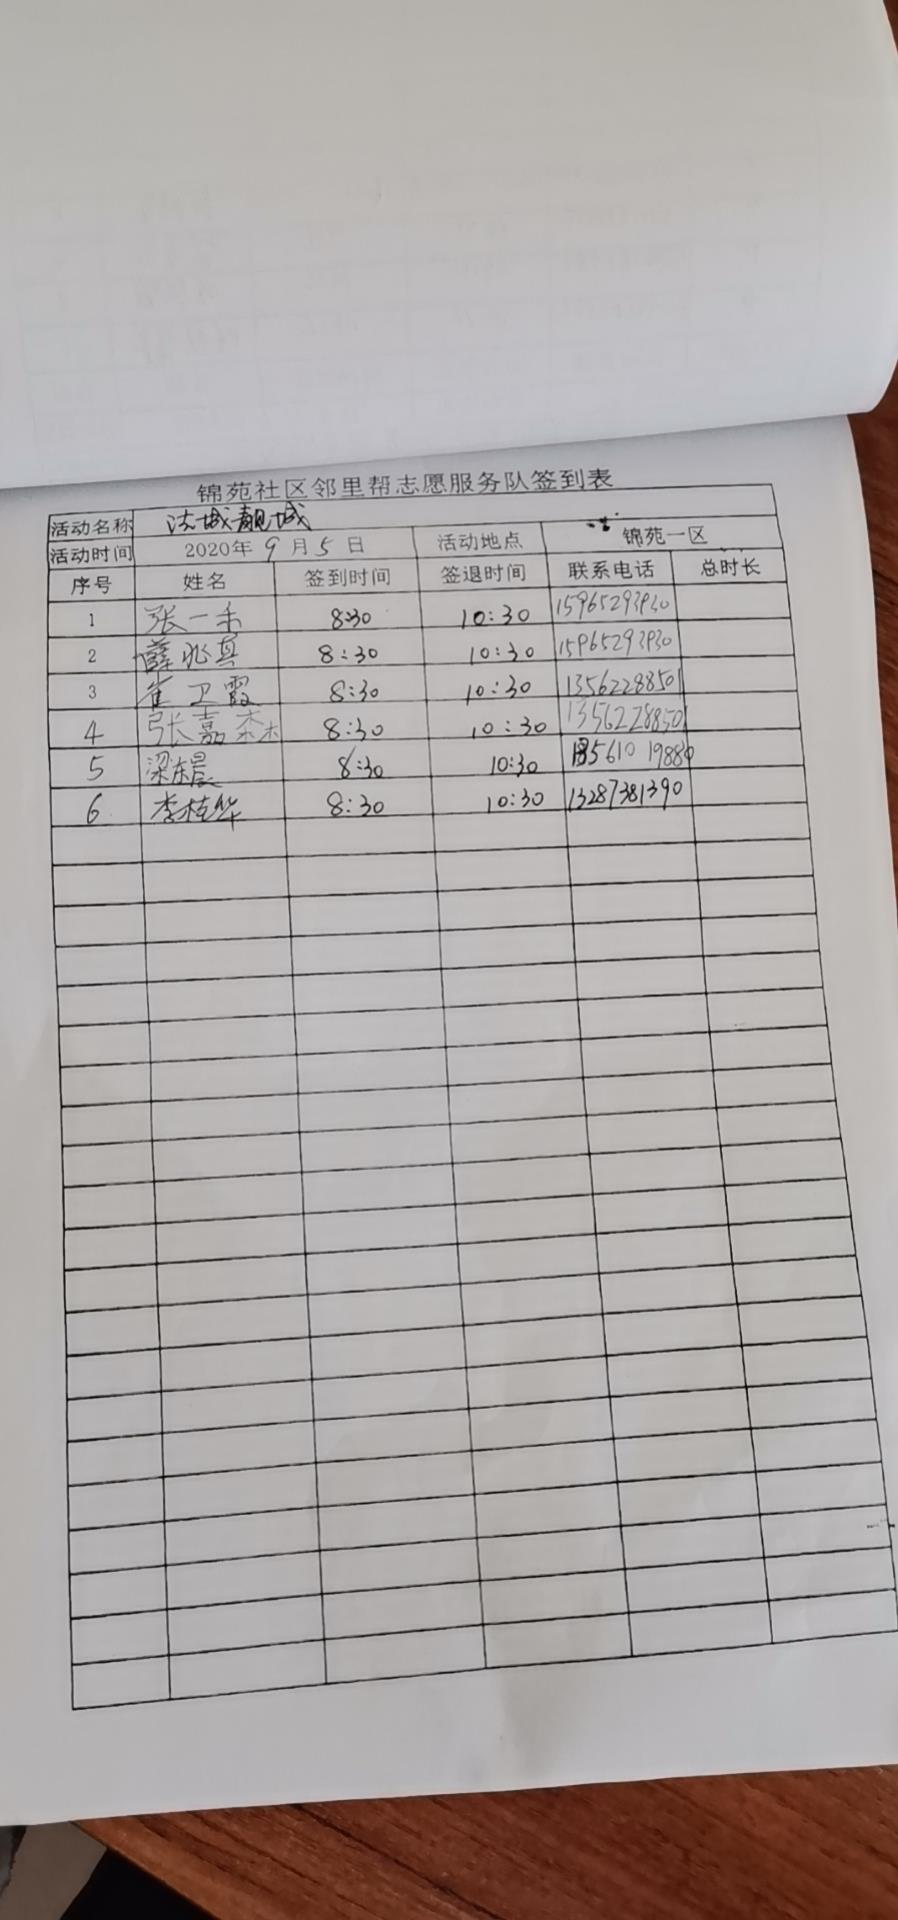 锦苑社区邻里帮志愿服务队签到表
活动名称 洁城靓城
活动时间 2020年9月5日 活动地点 锦苑一区
序号 姓名 签到时间 签退时间 联系电话 总时长
1 张一禾 8:30 10:30
2 薛兆真 8:30 10:30
3 崔卫霞 8:30 10:30 13562288501
4 张嘉森 8:30 10:30 13562288501
5 梁东晨 8:30 10:30
6 李桂华 8:30 10:30 13287381390